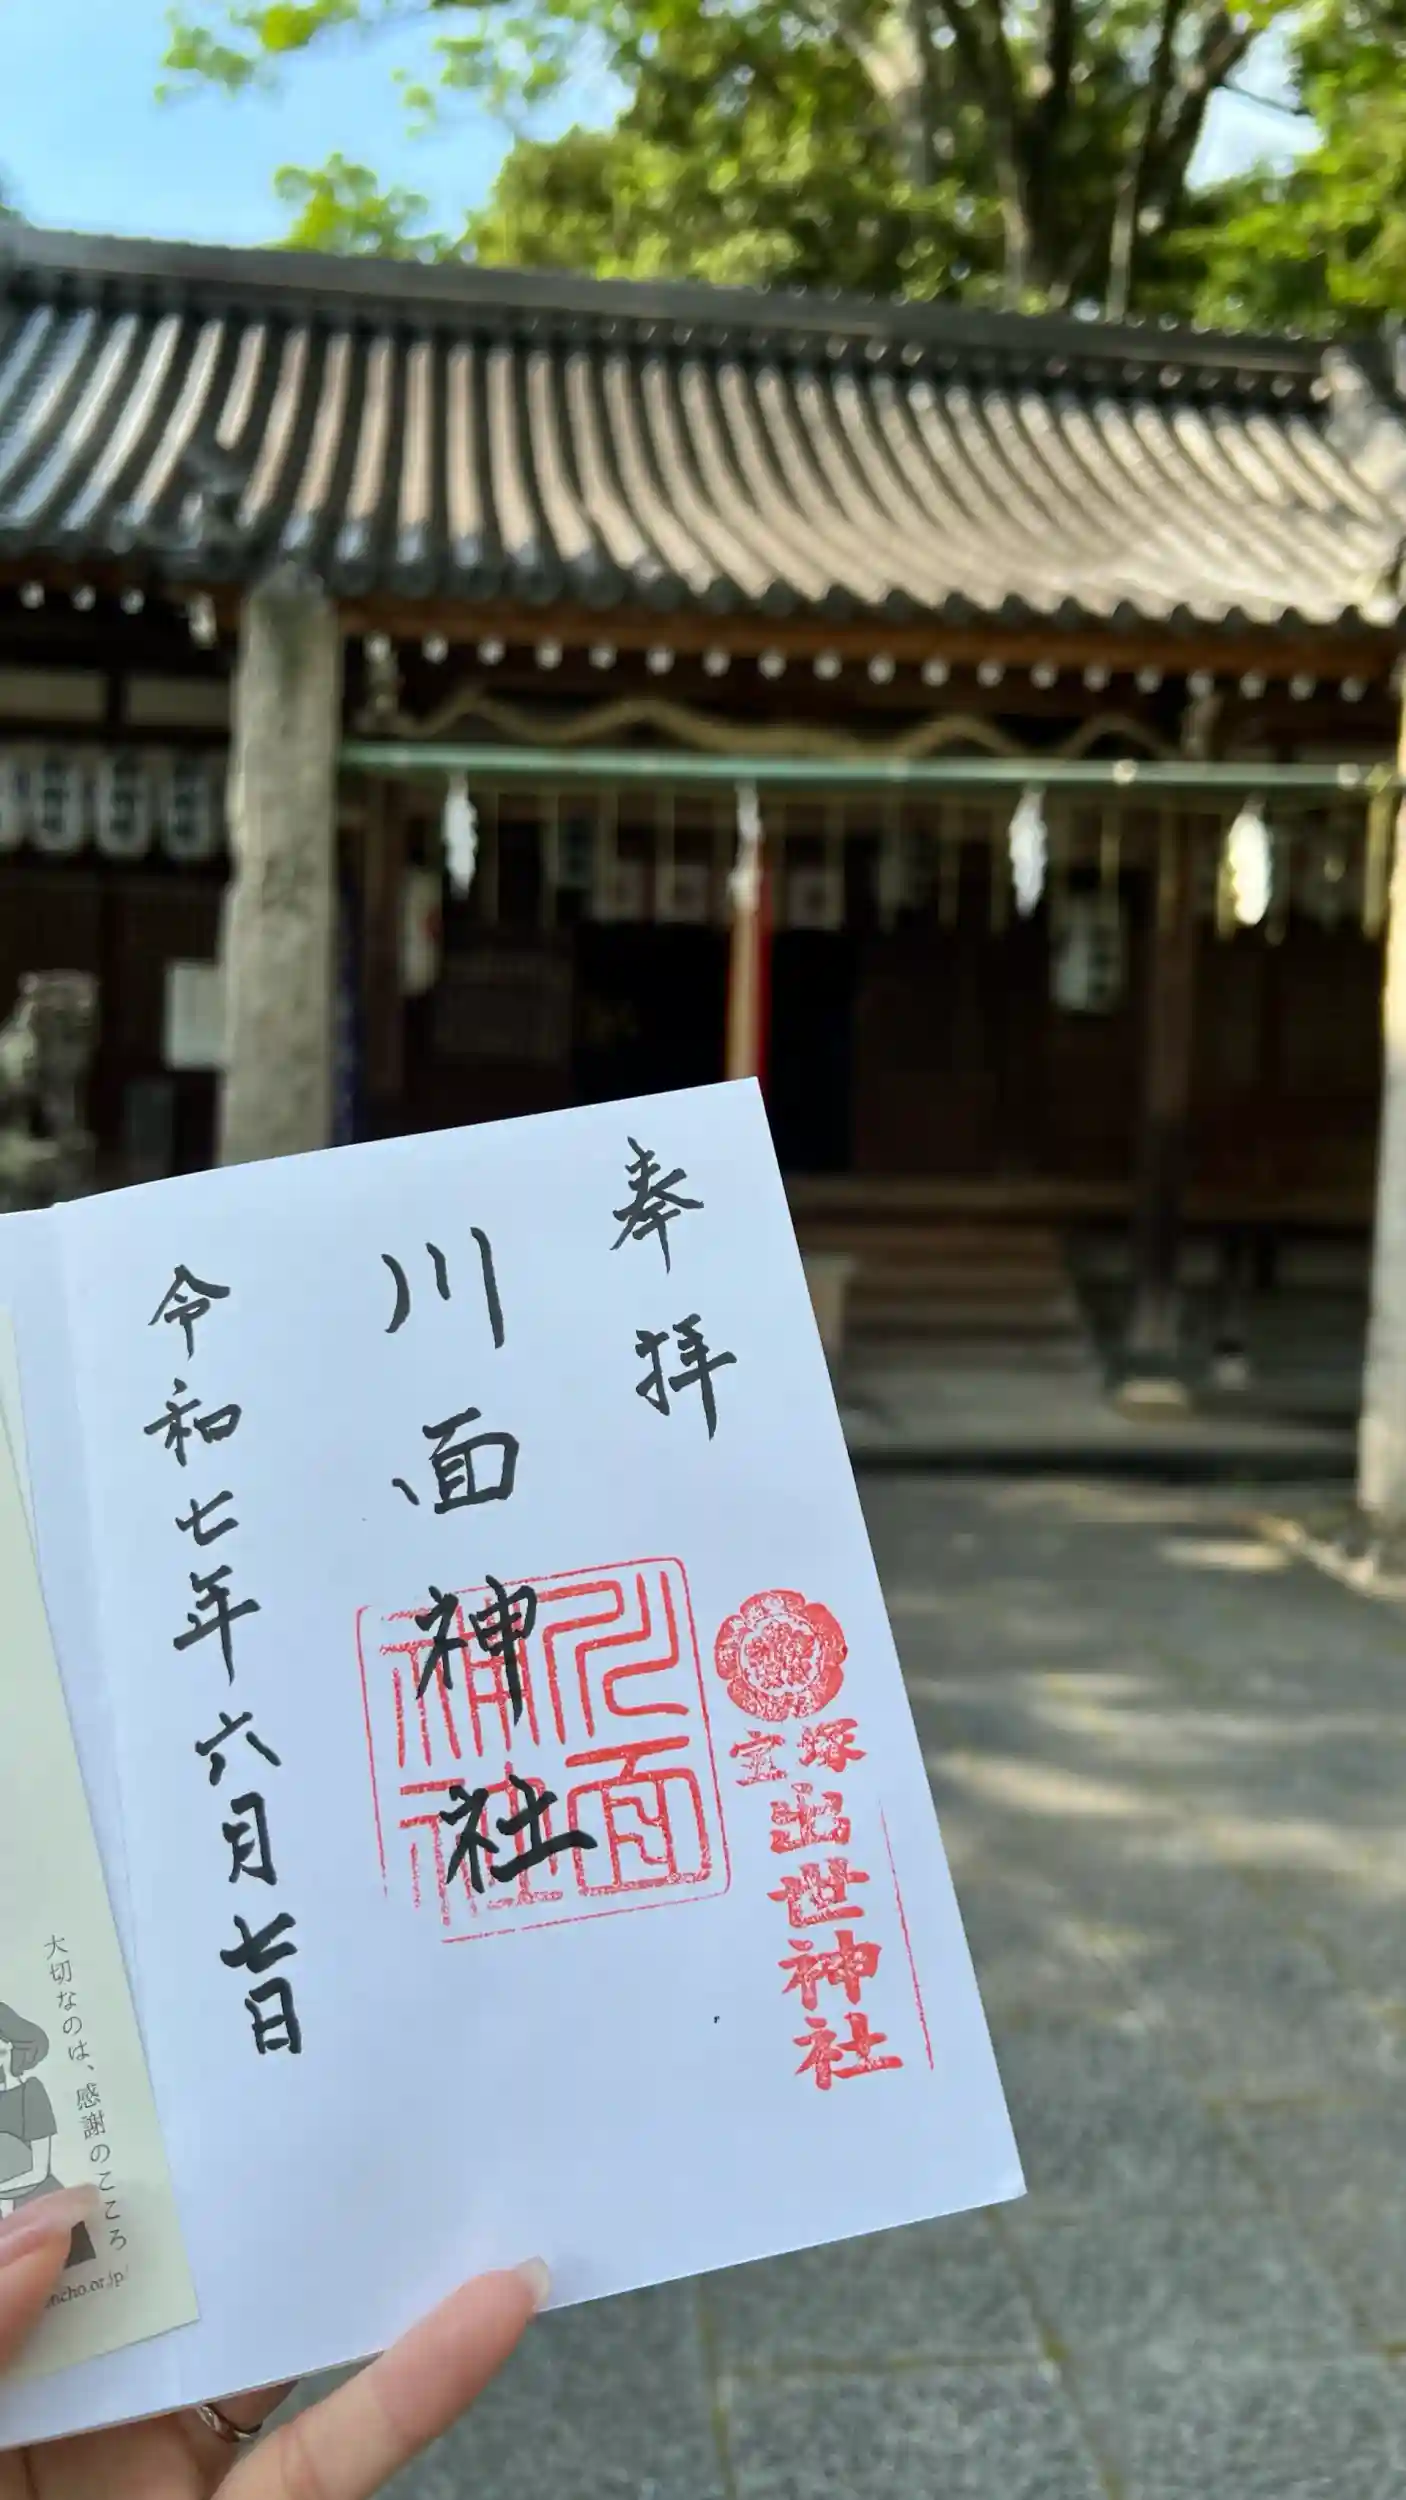 奉拝
宝塚
出世神社
川面神社
川面神社
令和七年六月七日
大切なのは、感謝のこころ
ncho.or.jp/